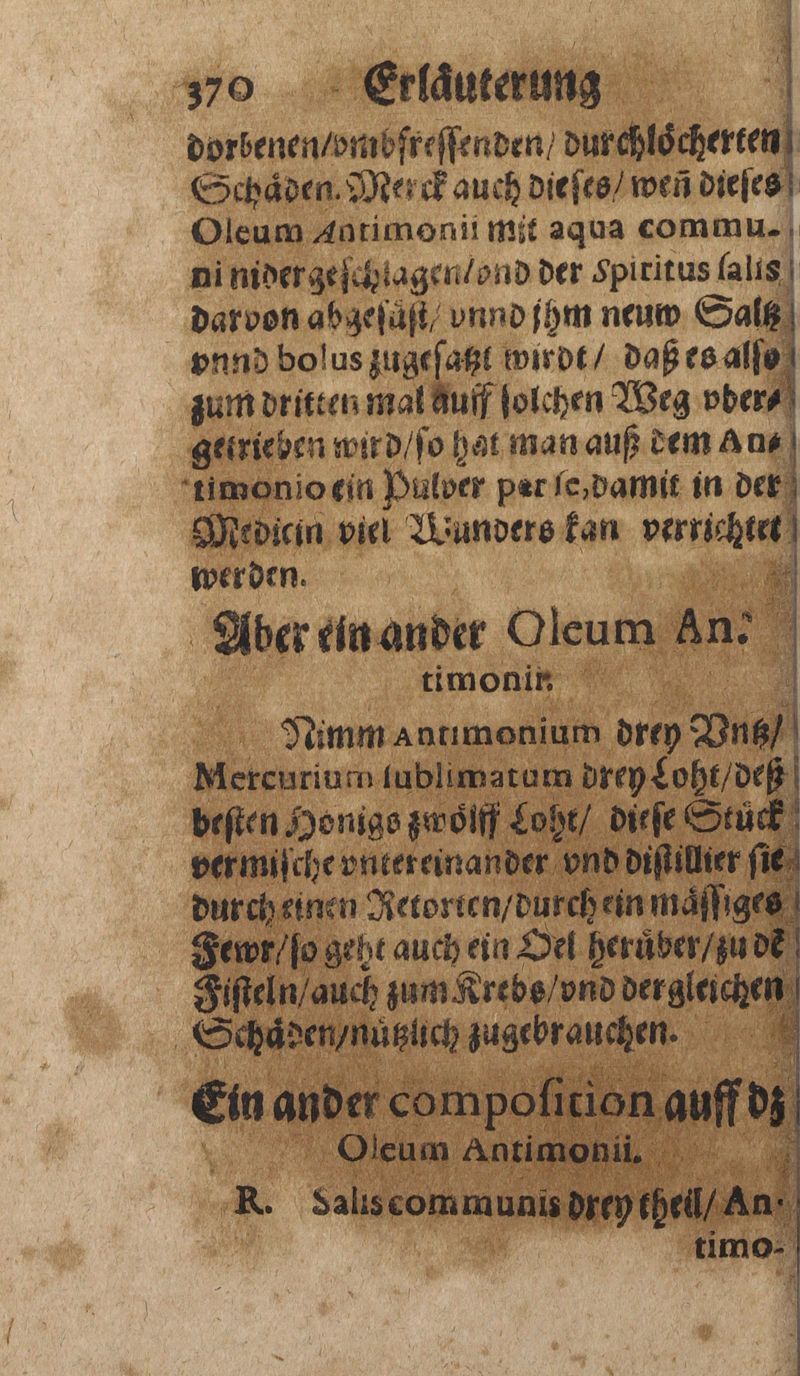 370 Erläuterung
dorbenen/vmbfressenden/ durchlöcherten
Schäden. Merck auch dieses/ weñ dieses
Oleum Antimonii mit aqua commu-
ni nidergeschlagen/vnd der Spiritus salis
darvon abgesüßt/ vnnd jhm neuw Saltz
vnnd bolus zugesatzt wirdt/ daß es also
zum dritten mal auff solchen Weg vber-
getrieben wird/so hat man auß dem An-
timonio ein Pulver per se,damit in der
Medicin viel Wunders kan verrichtet
werden.
Aber ein ander Oleum An-
timonii.
Nimm Antimonium drey Vntz/
Mercurium sublimatum drey Loht/deß
besten Honigs zwölff Loht/ diese Stück
vermische vntereinander vnd distillier sie
durch einen Retorten/durch ein mässiges
Fewr/so geht auch ein Oel herüber/zu dẽ
Fisteln/auch zum Krebs/vnd dergleichen
Schäden/nützlich zugebrauchen.
Ein ander composition auff dz
Oleum Antimonii.
R. Salis communis drey theil/ An-
timo-